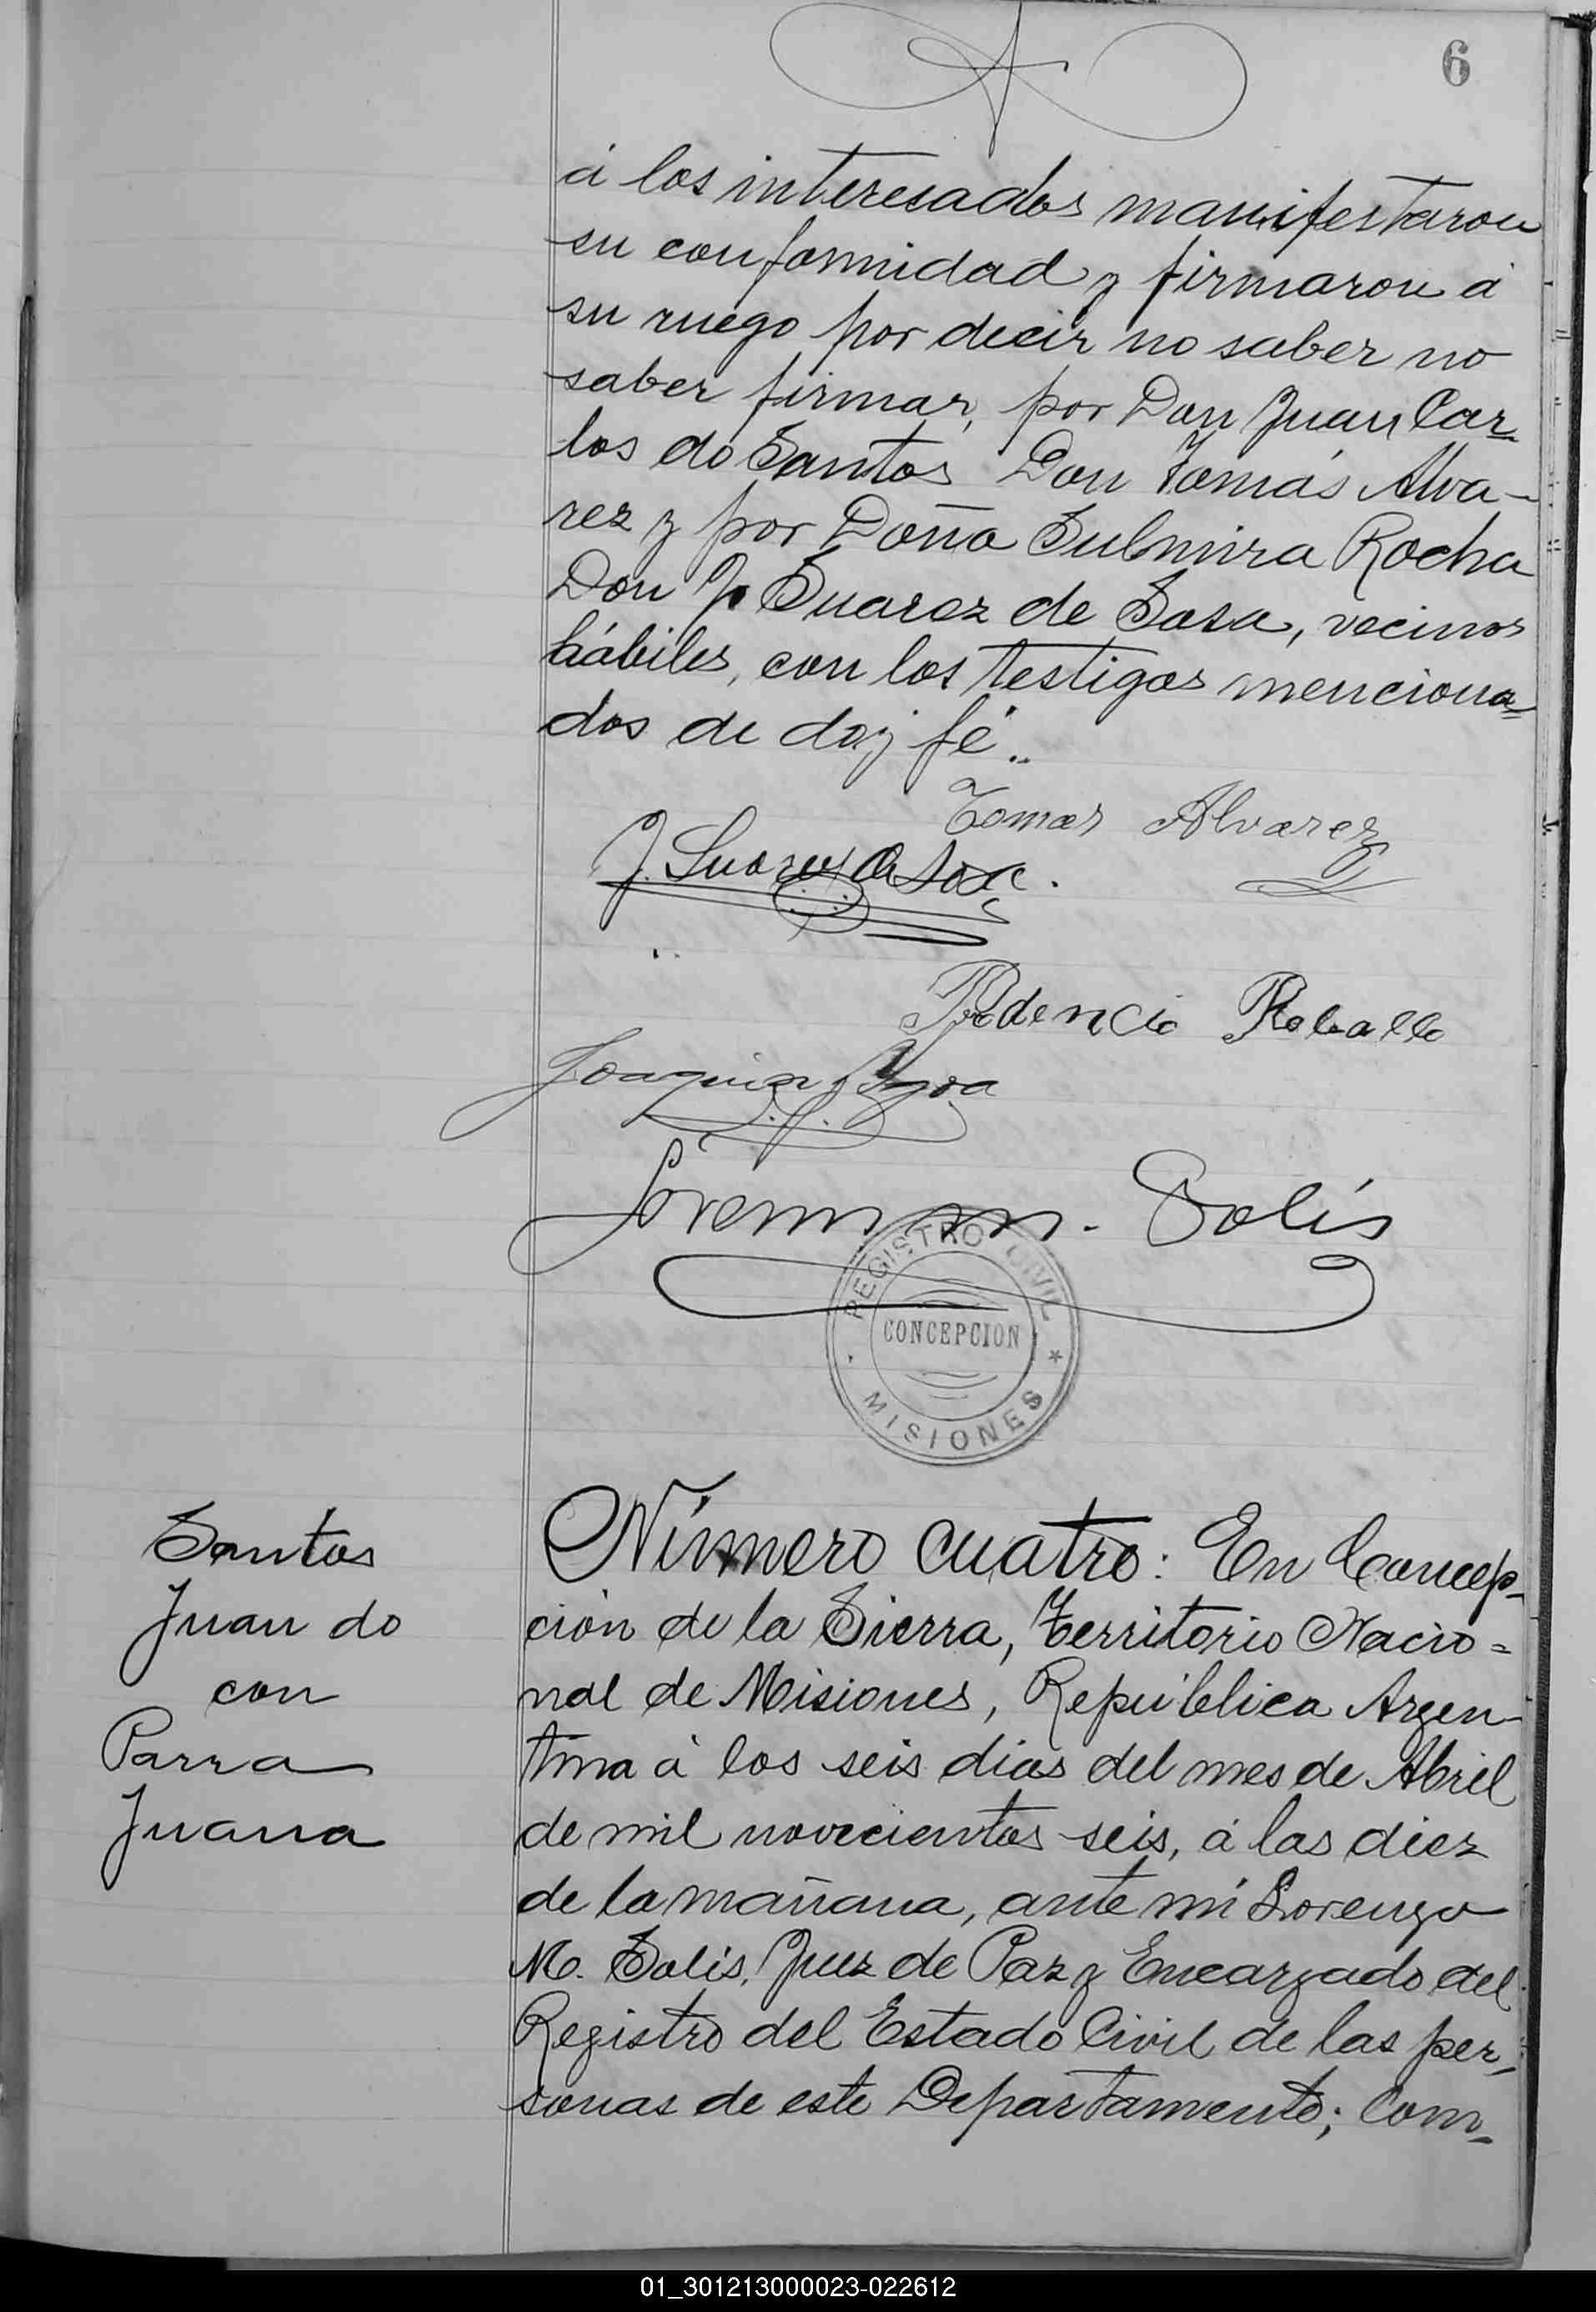 6
á los interesados manifestaron
su conformidad y firmaron á
su ruego por decir no saber no
saber firmar, por Don Juan Car-
los do Santos Don Tomás Alva-
rez y por Doña Sulmira Rocha
Don J. Suarez de Sosa, vecinos
hábiles, con los testigos menciona=
dos de doy fé..
Tomas Alvarez
J. Suarez de Sosa.
Prudencio Roballo
Joaquin
Lorenzo M. Solís
REGISTRO CIVIL
CONCEPCION
MISIONES
Santos
Juan do
con
Parra
Juana
Número cuatro: En Concep-
ción de la Sierra, Territorio Nacio=
nal de Misiones, República Argen-
tina á los seis dias del mes de Abril
de mil novecientos seis, á las diez
de la mañana, ante mí Lorenzo
M. Solis, Juez de Paz y Encargado del
Registro del Estado Civil de las per-
sonas de este Departamento; Com-
01_301213000023-022612